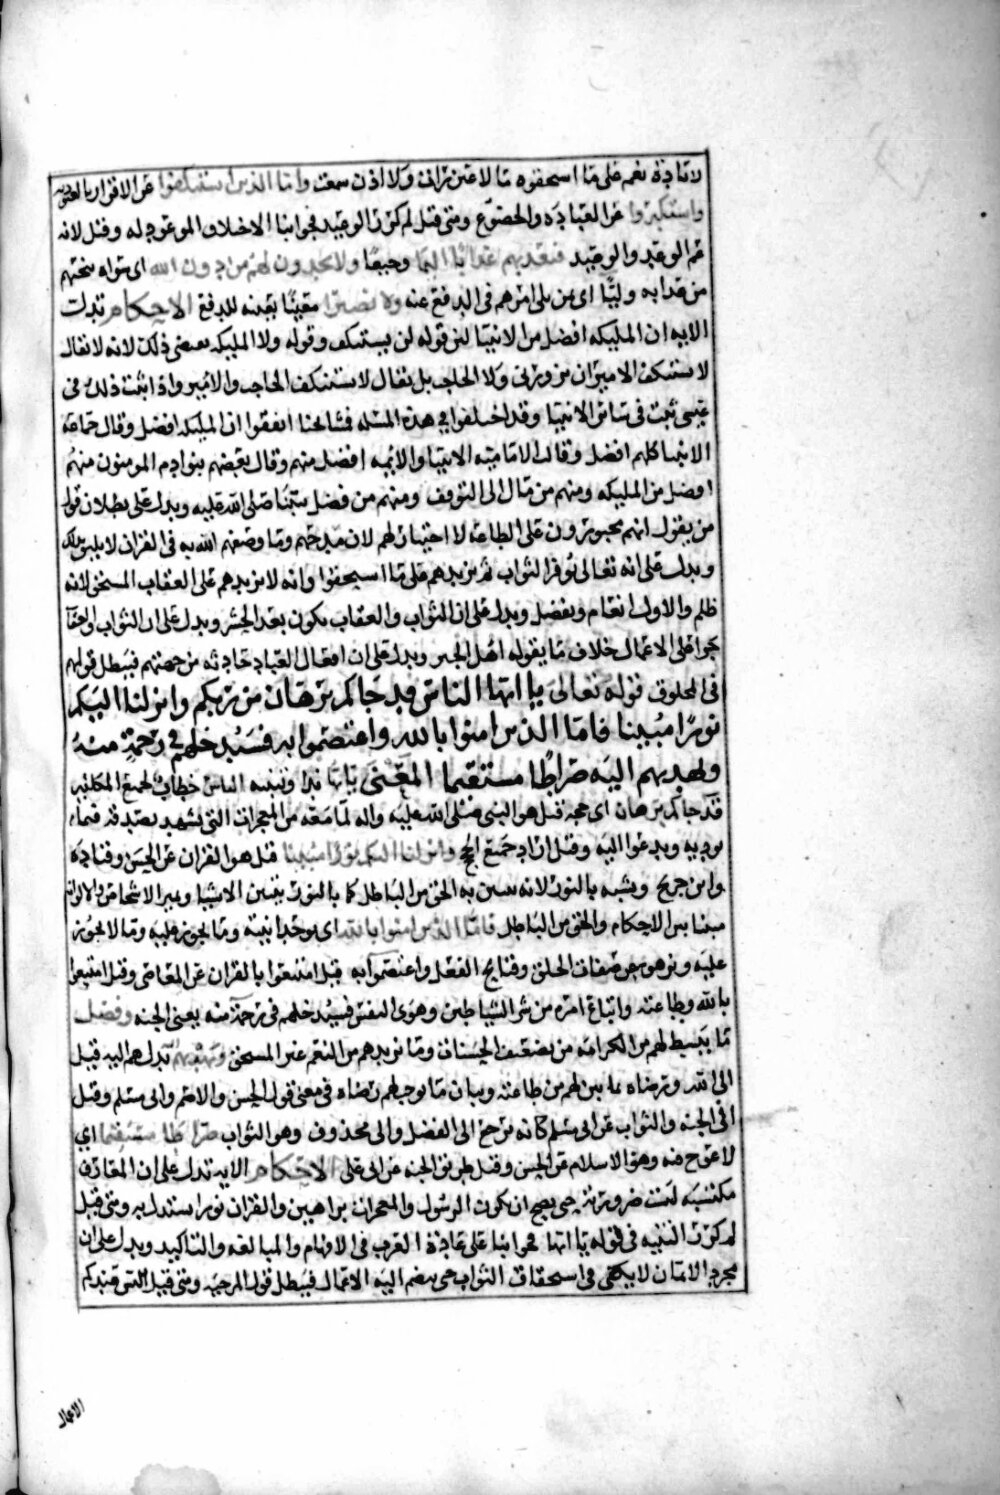 لاتادة نعم على ما استحقوه ما لا عين رات ولا اذن سمعت واما الذين استنكفوا عن الاقرار بالعبودية
واستكبروا عن العبادة والخضوع ومتى قيل لم كرر الوعيد فجوابنا لاختلاف الموعود له وقيل لانه
عم الوعد والوعيد فيعذبهم عذابا اليما وجيعا ولا يجدون لهم من دون الله اى سواه ينجيهم
من عذابه وليا اى من يلى امرهم فى الدفع عنه ولا نصيرا معينا بعينه للدفع الاحكام تدلت
الايه ان المليكه افضل من الانبيا لان قوله لن يستنكف وقوله ولا المليكه يقتضى ذلك لانه لا يقال
لا يستنكف الامير ان يزورنى ولا الحاجب بل يقال لا يستنكف الحاجب ولا الامير واذا ثبت ذلك فى
عيسى ثبت فى سائر الانبيا وقد اختلفوا فى هذه المسئله فمشايخنا اتفقوا ان المليكه افضل وقال جماعة
الانبيا كلهم افضل وقالت الاماميه الانبيا والائمه افضل منهم وقال بعضهم بنو ادم المومنون منهم
افضل من المليكه ومنهم من مال الى التوقف ومنهم من فضل نبينا صلى الله عليه ويدل على بطلان قول
من يقول انهم مجبورون على الطاعة لا اختيار لهم لان مدحهم وما وصفهم الله به فى القران لا يليق بذلك
ويدل على انه تعالى يوفر الثواب ثم يزيدهم على ما استحقوا وانه لا يزيدهم على العقاب المستحق لانه
ظلم والاول انعام وتفضل ويدل على ان الثواب والعقاب يكون بعد الحشر ويدل على ان الثواب والجزا
جزا على الاعمال خلاف ما يقوله اهل الجبر ويدل على ان افعال العباد حادثه من جهتهم فيبطل قولهم
فى المخلوق قوله تعالى يا ايها الناس قد جاكم برهان من ربكم وانزلنا اليكم
نورا مبينا فاما الذين امنوا بالله واعتصموا به فسيدخلهم فى رحمة منه
ويهديهم اليه صراطا مستقيما المعنى يا ايها ندا وتنبيه الناس خطاب لجميع المكلفين
قد جاكم برهان اى حجه قيل هو النبى صلى الله عليه واله لما معه من المعجزات التى تشهد بصدقه فيما
يوديه ويدعوا اليه وقيل اراد جميع الحجج وانزلنا اليكم نورا مبينا قيل هو القران عن الحسن وقتاده
وابن جريج وشبه بالنور لانه يتبين به الحق من الباطل كما بالنور يتبين الاشيا وتميز الاشخاص والالوان
مبينا يبين الاحكام والحق من الباطل فاما الذين امنوا بالله اى بوحدانيته وما يجوز عليه وما لا يجوز
عليه ونزهوه عن صفات الخلق وقبايح الفعل واعتصموا به قيل امتنعوا بالقران عن المعاصى وقيل امتنعوا
بالله وطاعته واتباع امره من شر الشياطين وهوى النفس فسيدخلهم فى رحمة منه يعنى الجنه وفضل
ما يبسط لهم من الكرامه من تضعيف الحسنات وما يزيدهم من النعم غير المستحق ويهديهم يدلهم اليه قيل
الى الله ورضاه بما بين لهم من طاعته وبيان ما يوجب لهم رضاه فى معنى قول الحسن والاصم وابى مسلم وقيل
الى الجنه والثواب عن ابى مسلم كانه يرجع الى الفضل والى محذوف وهو الثواب صراطا مستقيما اى
لا عوج فيه وهو الاسلام عن الحسن وقيل طريق الجنه عن ابى على الاحكام الايه تدل على ان المعارف
مكتسبه ليست ضرورية حتى يصح ان يكون الرسول والمعجزات براهين والقران نورا يستدل به ومتى قيل
لم كرر التنبيه فى قوله يا ايها فجوابنا على عادة العرب فى الافهام والمبالغه والتاكيد ويدل على ان
مجرد الايمان لا يكفى فى استحقاق الثواب حتى يضم اليه الاعمال فيبطل قول المرجيه ومتى قيل اليس عندكم
الاعمال